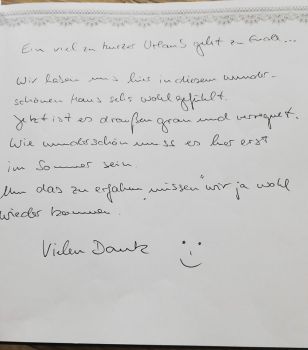 Ein viel zu kurzer Urlaub geht zu Ende...
Wir haben uns hier in diesem wunder-
schönen Haus sehr wohl gefühlt.
Jetzt ist es draußen grau und verregnet.
Wie wunderschön muss es hier erst
im Sommer sein.
Um das zu erfahren "müssen" wir ja wohl
wieder kommen.
Vielen Dank